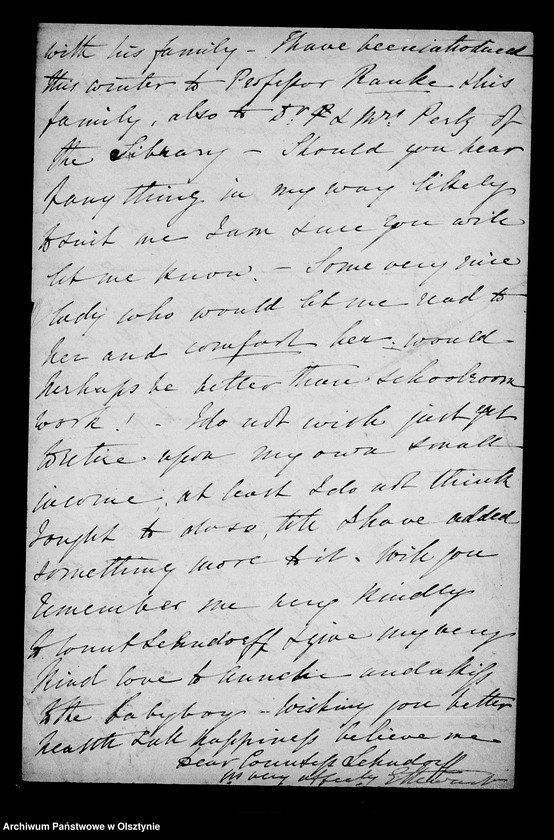 with his family – I have been introduced
this winter to Professor Ranke & his
family, also to Dr. P & Mrs. Pertz of
the Library – Should you hear
of any thing in my way likely
to suit me I am sure you will
let me know. – Some very nice
lady who would let me read to
her and comfort her, would
perhaps be better than schoolroom
work! – I do not wish just yet
to retire upon my own small
income, at least I do not think
I ought to do so, till I have added
something more to it. Will you
remember me very kindly
to Count Lehndorff, & give my very
kind love to and a kiss
to the baby boy – Wishing you better
health & all happiness believe me
dear Countess Lehndorff
yr very affectly
Archiwum Państwowe w Olsztynie